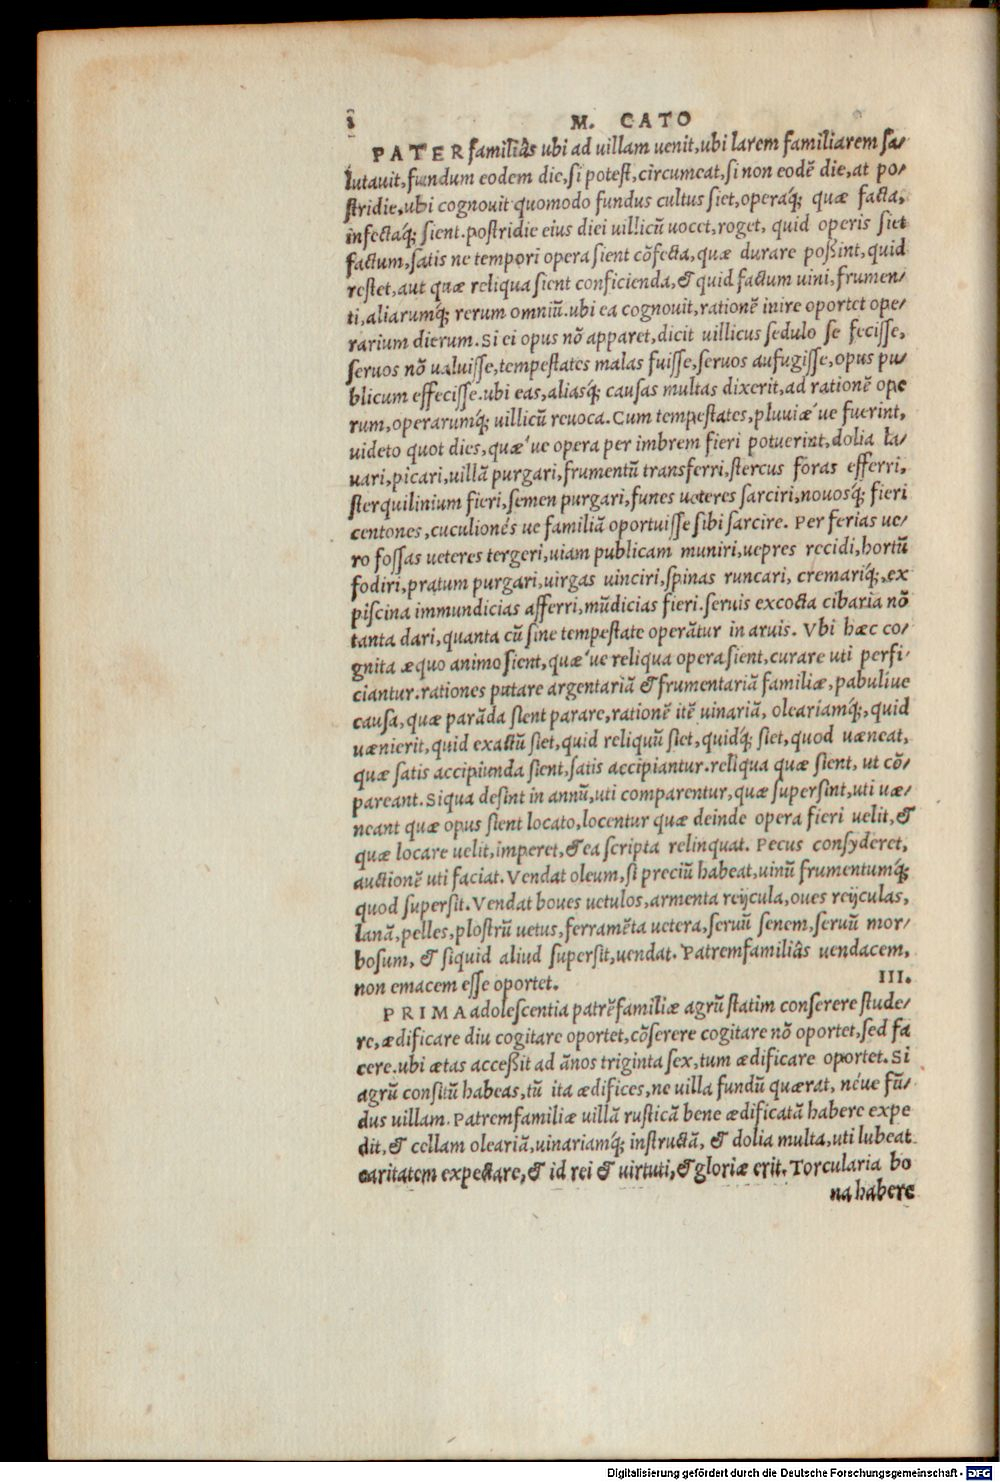 M. CATO
PATERfamiliâs ubi ad uillam uenit,ubi larem familiarem ſa⸗
lutauit,fundum eodem die,ſi poteſt,circumeat,ſi non eodē die,at po⸗
ſtridie,ubi cognouit quomodo fundus cultus ſiet,operaq́; quæ facta,
infectaq́; ſient.poſtridie eius diei uillicū uocet,roget, quid operis ſiet
factum,ſatis ne tempori opera ſient cōfecta,quæ durare poßint,quid
reſtet,aut quæ reliqua ſient conficienda,& quid factum uini,frumen⸗
ti,aliarumq́; rerum omniū.ubi ea cognouit,rationē inire oportet ope⸗
rarium dierum.Si ei opus nō apparet,dicit uillicus ſedulo ſe feciſſe,
ſeruos nō ualuiſſe,tempeſtates malas fuiſſe,ſeruos aufugiſſe,opus pu⸗
blicum effeciſſe.ubi eas,aliasq́; cauſas multas dixerit,ad rationē ope
rum,operarumq́; uillicū reuoca.Cum tempeſtates,pluuiæ´ue fuerint,
uideto quot dies,quæ´ue opera per imbrem fieri potuerint,dolia la⸗
uari,picari,uillā purgari,frumentū transferri,ſtercus foras efferri,
ſterquilinium fieri,ſemen purgari,funes ueteres ſarciri,nouosq́; fieri
centones,cuculionés ue familiā oportuiſſe ſibi ſarcire. Per ferias ue⸗
ro foſſas ueteres tergeri,uiam publicam muniri,uepres recidi,hortū
fodiri,pratum purgari,uirgas uinciri,ſpinas runcari, cremariq́;,ex
piſcina immundicias afferri,mūdicias fieri.ſeruis excocta cibaria nō
tanta dari,quanta cū ſine tempeſtate operātur in aruis. Vbi hæc co⸗
gnita æquo animo ſient,quæ´ue reliqua opera ſient,curare uti perfi⸗
ciantur.rationes putare argentariā & frumentariā familiæ,pabuliue
cauſa,quæ parāda ſient parare,rationē itē uinariā, oleariamq́;,quid
uænierit,quid exactū ſiet,quid reliquū ſiet,quidq́; ſiet,quod uæneat,
quæ ſatis accipiunda ſient,ſatis accipiantur.reliqua quæ ſient, ut cō⸗
pareant.Siqua deſint in annū,uti comparentur,quæ ſuperſint,uti uæ⸗
neant quæ opus ſient locato,locentur quæ deinde opera fieri uelit,&
quæ locare uelit,imperet,& ea ſcripta relinquat. Pecus conſyderet,
auctionē uti faciat.Vendat oleum,ſi preciū habeat,uinū frumentumq́;
quod ſuperſit.Vendat boues uetulos,armenta reijcula,oues reijculas,
lanā,pelles,ploſtrū uetus,ferramēta uetera,ſeruū ſenem,ſeruū mor⸗
boſum, & ſiquid aliud ſuperſit,uendat. Patremfamiliâs uendacem,
non emacem eſſe oportet. III.
PRIMA adoleſcentia patrēfamiliæ agrū ſtatim conſerere ſtude⸗
re,ædificare diu cogitare oportet,cōſerere cogitare nō oportet,ſed fa
cere.ubi ætas acceßit ad ānos triginta ſex,tum ædificare oportet.Si
agrū conſitū habeas,tū ita ædifices,ne uilla fundū quærat, néue fū⸗
dus uillam.Patremfamiliæ uillā ruſticā bene ædificatā habere expe
dit,& cellam oleariā,uinariamq́; inſtructā, & dolia multa,uti lubeat
caritatem expectare,& id rei & uirtuti,& gloriæ erit.Torcularia bo
na habere
Digitalisierung gefördert durch die Deutsche Forschungsgemeinschaft - DFG